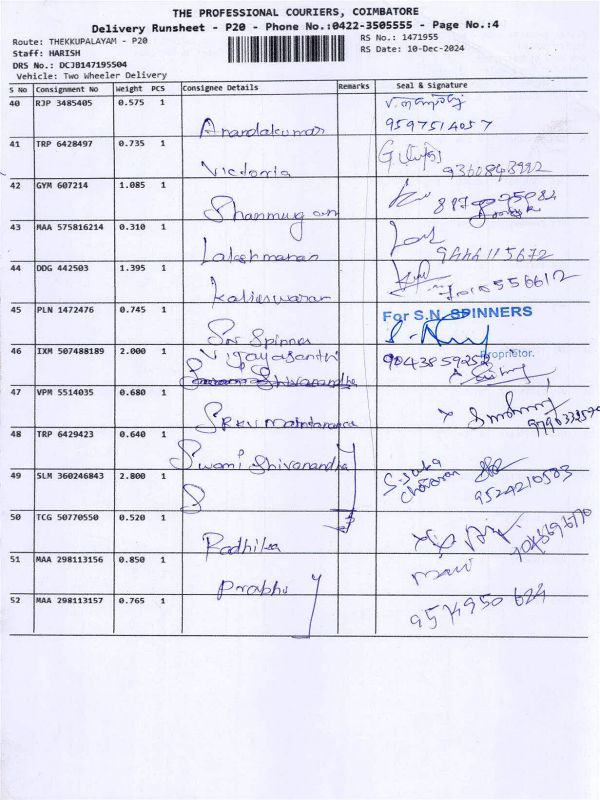 THE PROFESSIONAL COURIERS, COIMBATORE
Delivery Runsheet - P20 - Phone No.:0422-3505555 - Page No.:4
Route: THEKKUPALAYAM - P20
RS No.: 1471955
Staff: HARISH
RS Date: 10-Dec-2024
DRS No.: DCJB147195504
Vehicle: Two Wheeler Delivery
S No Consignment No Weight PCS Consignee Details Remarks Seal & Signature
40 RJP 3485405 0.575 1
Anandakumar 9597514057
41 TRP 6428497 0.735 1
Victoria 9360843992
42 GYM 607214 1.085 1
Shanmugam
43 MAA 575816214 0.310 1
Lakshmanan 9444115672
44 DDG 442503 1.395 1
Kalieswaran
45 PLN 1472476 0.745 1 For S.N. SPINNERS
Sri Spinner
46 IXM 507488189 2.000 1 Vijayasanthi 9043859252 Proprietor.
47 VPM 5514035 0.680 1
48 TRP 6429423 0.640 1
Swami Shivanandha
49 SLM 360246843 2.800 1
S 9524210583
50 TCG 50770550 0.520 1
Radhika
51 MAA 298113156 0.850 1
Prabhu
52 MAA 298113157 0.765 1 9574950624